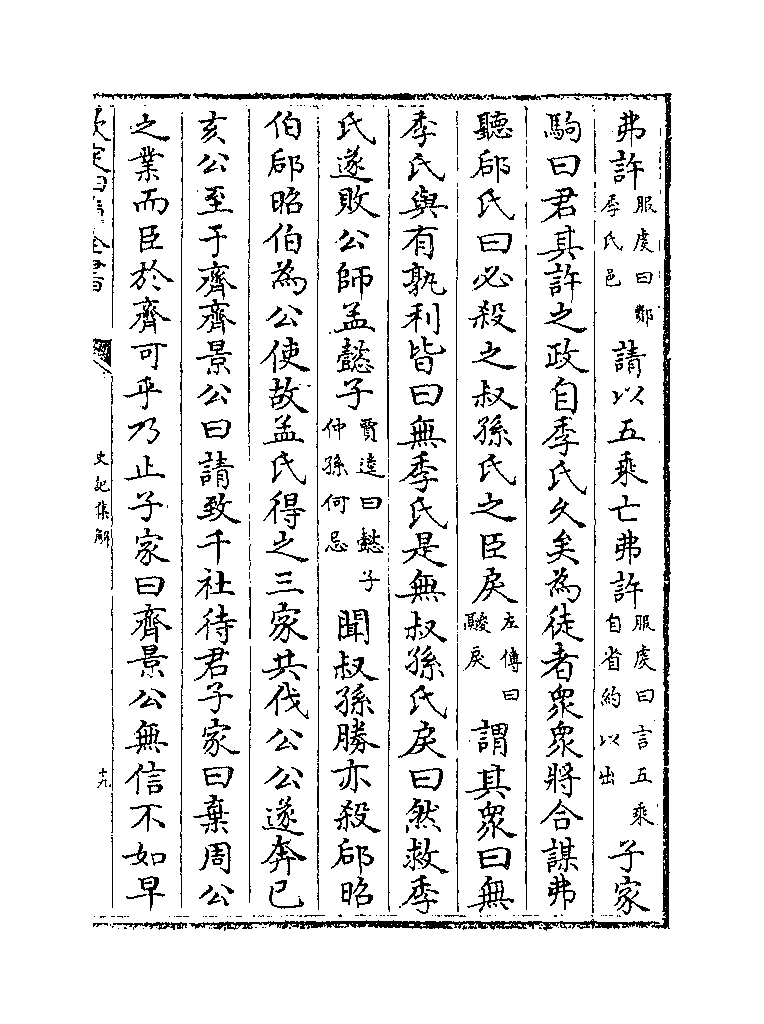 弗許服虔曰鄪季氏邑請以五乘亡弗許服虔曰言五乘自省約以出子家
駒曰君其許之政自季氏久矣為徒者衆衆將合謀弗
聽郈氏曰必殺之叔孫氏之臣戾左傳曰鬷戾謂其衆曰無
季氏與有孰利皆曰無季氏是無叔孫氏戾曰然救季
氏遂敗公師孟懿子賈逵曰懿子仲孫何忌聞叔孫勝亦殺郈昭
伯郈昭伯為公使故孟氏得之三家共伐公公遂奔已
亥公至于齊齊景公曰請致千社待君子家曰棄周公
之業而臣於齊可乎乃止子家曰齊景公無信不如早
欽定四庫全書
史記集解
十九